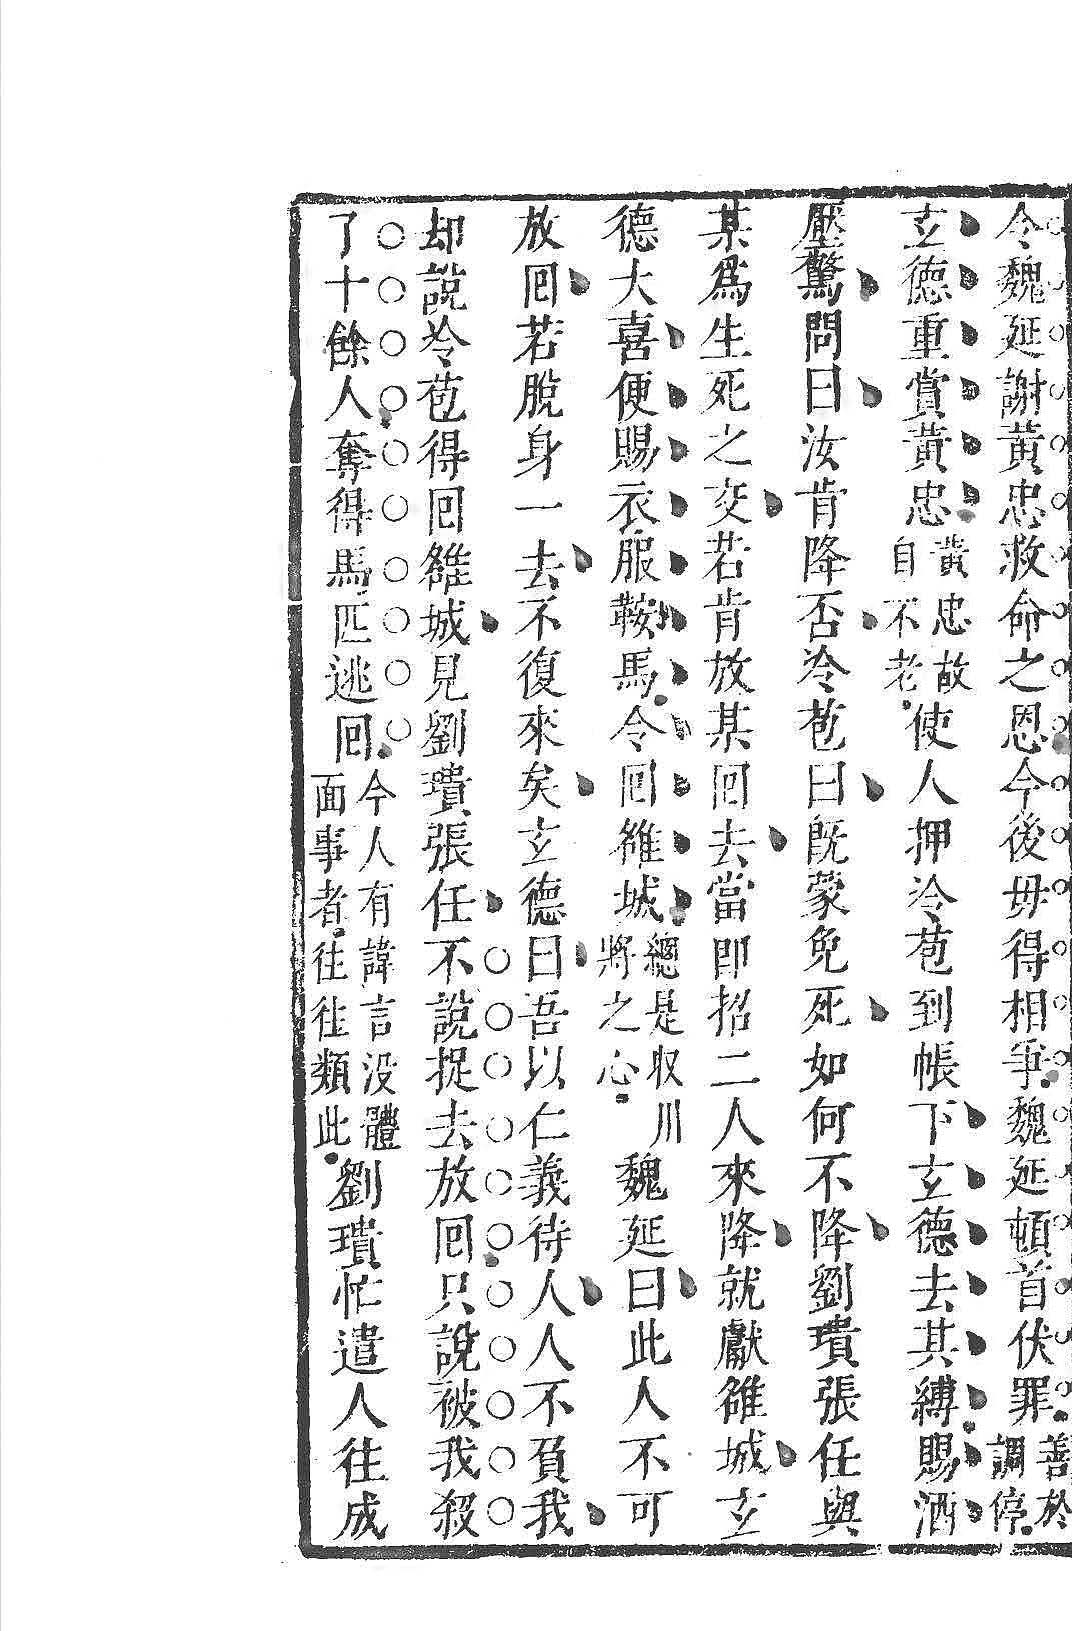 令魏延謝黃忠救命之恩今後毋得相爭魏延頓首伏罪善於調停
玄德重賞黃忠黃忠故自不老使人押冷苞到帳下玄德去其縛賜酒
壓驚問曰汝肯降否冷苞曰既蒙免死如何不降劉璝張任與
某爲生死之交若肯放某回去當卽招二人來降就獻雒城玄
德大喜便賜衣服鞍馬令回雒城總是収川將之心魏延曰此人不可
放回若脫身一去不復來矣玄德曰吾以仁義待人人不負我
却說冷苞得回雒城見劉璝張任不說捉去放回只說被我殺
了十餘人奪得馬匹逃回今人有諱言没體面事者往往類此劉璝忙遣人往成